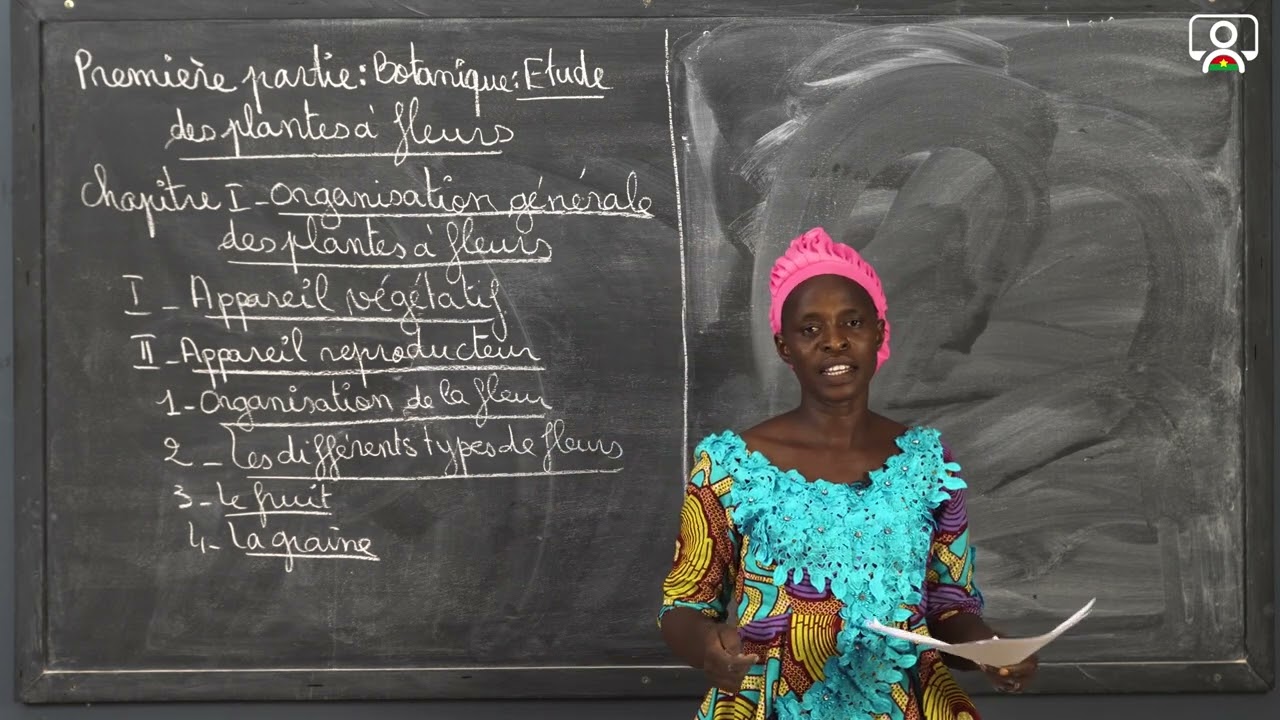 Première partie : Botanique : Etude
des plantes à fleurs
Chapitre I - Organisation générale
des plantes à fleurs
I - Appareil végétatif
II - Appareil reproducteur
1 - Organisation de la fleur
2 - Les différents types de fleurs
3 - Le fruit
4 - La graine